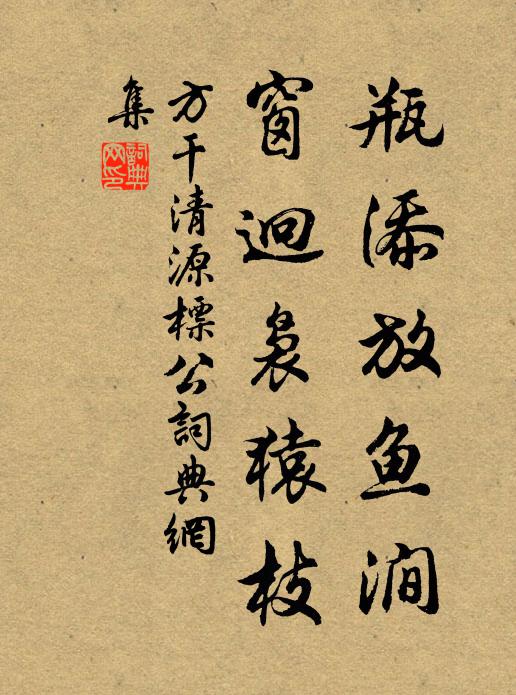 瓶添放鱼涧
窗迴袅猿枝
方干清源標公詞典網
集
詞典網印